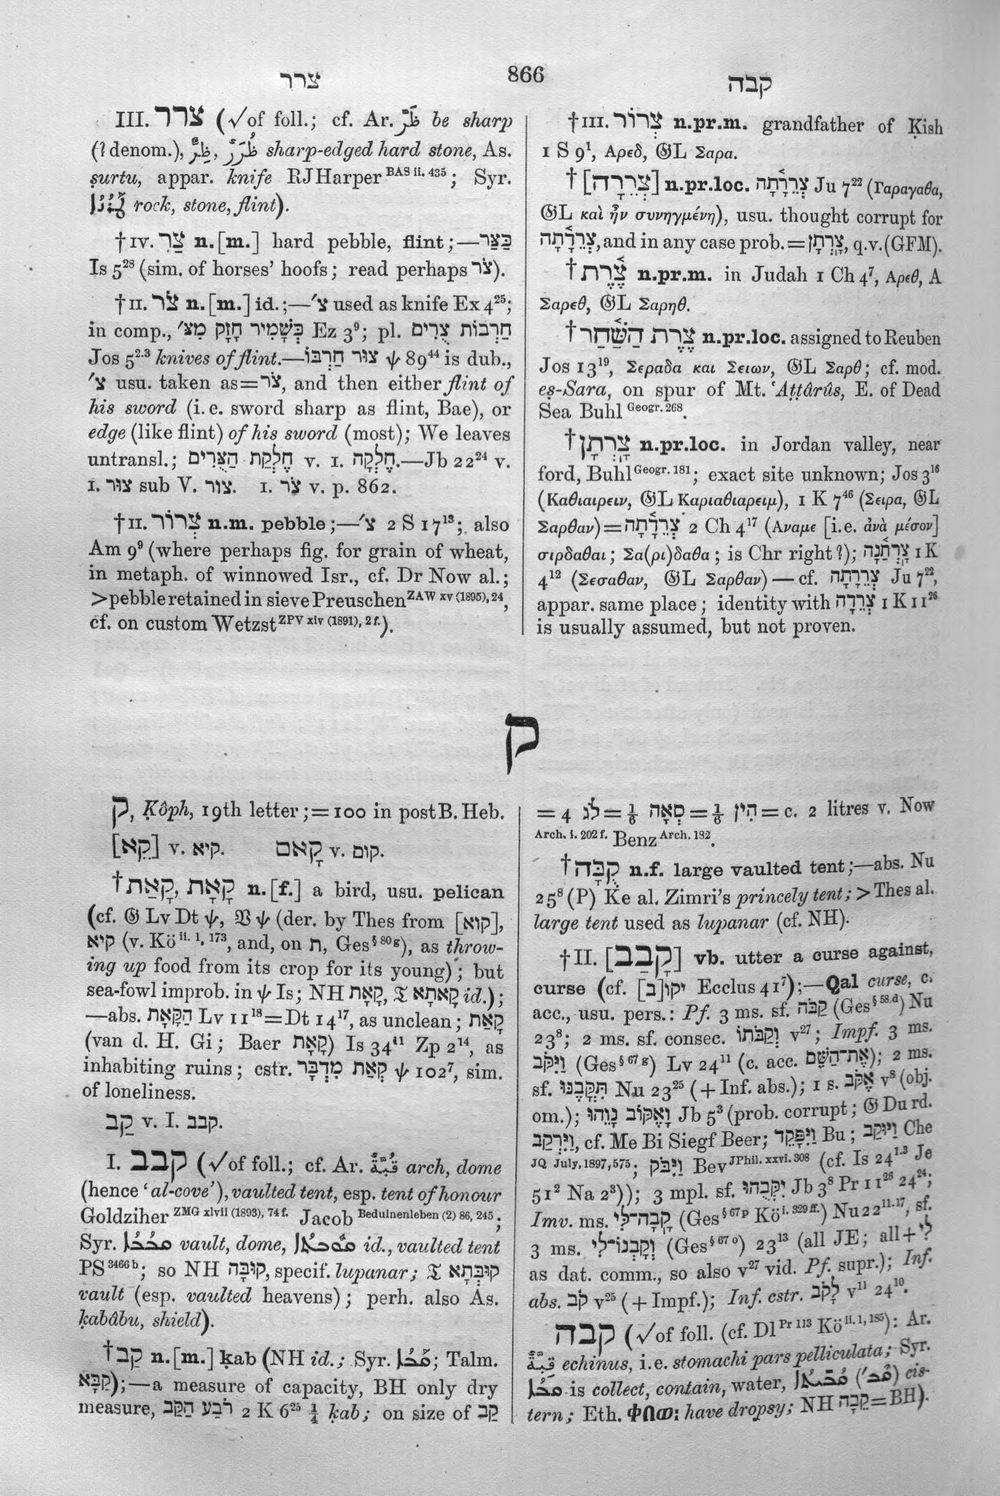 צרר
866
קבה
III. צרר (√of foll.; cf. Ar. ظَرَّ be sharp
(? denom.), ظِرٌّ, ظُرَرٌ sharp-edged hard stone, As.
ṣurtu, appar. knife RJHarper BAS ii. 435; Syr.
rock, stone, flint).
†IV. צַר n.[m.] hard pebble, flint;—כַּצַּר
Is 5²⁸ (sim. of horses’ hoofs; read perhaps צֹר).
†II. צֹר n.[m.] id.;—צ׳ used as knife Ex 4²⁵;
in comp., כְּשָׁמִיר חָזָק מִצּ׳ Ez 3⁹; pl. חַרְבוֹת צֻרִים
Jos 5²·³ knives of flint.—צוּר חַרְבּוֹ ψ 89⁴⁴ is dub.,
צ׳ usu. taken as=צֹר, and then either flint of
his sword (i.e. sword sharp as flint, Bae), or
edge (like flint) of his sword (most); We leaves
untransl.; חֶלְקַת הַצֻּרִים v. I. חֶלְקָה.—Jb 22²⁴ v.
I. צוּר sub V. צור. I. צֹר v. p. 862.
†II. צְרוֹר n.m. pebble;—צ׳ 2 S 17¹³; also
Am 9⁹ (where perhaps fig. for grain of wheat,
in metaph. of winnowed Isr., cf. Dr Now al.;
>pebble retained in sieve Preuschen ZAW xv (1895), 24,
cf. on custom Wetzst ZPV xiv (1891), 2 f.).
†III. צְרוֹר n.pr.m. grandfather of Ḳish
1 S 9¹, Αρεδ, 𝔊L Σαρα.
†[צְרֵרָה] n.pr.loc. צְרֵרָ֫תָה Ju 7²² (Γαραγαθα,
𝔊L καὶ ἦν συνηγμένη), usu. thought corrupt for
צְרֵדָ֫תָה, and in any case prob.=צָרְתָן, q.v.(GFM).
†צֶ֫רֶת n.pr.m. in Judah 1 Ch 4⁷, Αρεθ, A
Σαρεθ, 𝔊L Σαρηθ.
†צֶ֫רֶת הַשַּׁ֫חַר n.pr.loc. assigned to Reuben
Jos 13¹⁹, Σεραδα και Σειων, 𝔊L Σαρθ; cf. mod.
eṣ-Sara, on spur of Mt. ‘Aṭṭârûs, E. of Dead
Sea Buhl Geogr. 268.
†צָרְתָן n.pr.loc. in Jordan valley, near
ford, Buhl Geogr. 181; exact site unknown; Jos 3¹⁶
(Καθιαιρειν, 𝔊L Καριαθιαρειμ), 1 K 7⁴⁶ (Σειρα, 𝔊L
Σαρθαν)=צְרֵדָ֫תָה 2 Ch 4¹⁷ (Αναμε [i.e. ἀνὰ μέσον]
σιρδαθαι; Σα(ρι)δαθα; is Chr right?); צָֽרְתַ֫נָה 1 K
4¹² (Σεσαθαν, 𝔊L Σαρθαν)—cf. צְרֵרָתָה Ju 7²²,
appar. same place; identity with צְרֵדָה 1 K 11²⁶
is usually assumed, but not proven.
ק
ק, Ḳôph, 19th letter;=100 in postB. Heb.
[קֵא] v. קיא. קָאם v. קום.
†קָאָת, קָאַת n.[f.] a bird, usu. pelican
(cf. 𝔊 Lv Dt ψ, 𝔙 ψ (der. by Thes from [קוא],
קיא (v. Kö ii. 1, 173, and, on ת, Ges § 80 g), as throw-
ing up food from its crop for its young); but
sea-fowl improb. in ψ Is; NH קָאָת, 𝔗 קָאתָא id.);
—abs. הַקָּאָת Lv 11¹⁸=Dt 14¹⁷, as unclean; קָאַת
(van d. H. Gi; Baer קָאָת) Is 34¹¹ Zp 2¹⁴, as
inhabiting ruins; cstr. קְאַת מִדְבָּר ψ 102⁷, sim.
of loneliness.
קַב v. I. קבב.
I. קבב (√of foll.; cf. Ar. قُبَّةٌ arch, dome
(hence ‘al-cove’), vaulted tent, esp. tent of honour
Goldziher ZMG xlvii (1893), 74 f. Jacob Beduinenleben (2) 86, 245;
Syr. vault, dome, id., vaulted tent
PS 3466 b; so NH קוּבָּה, specif. lupanar; 𝔗 קוּבְּתָא
vault (esp. vaulted heavens); perh. also As.
ḳabâbu, shield).
†קַב n.[m.] ḳab (NH id.; Syr. ; Talm.
קַבָּא);—a measure of capacity, BH only dry
measure, רֹבַע הַקַּב 2 K 6²⁵ ¼ ḳab; on size of קַב
= 4 לֹג=⅙ סְאָה=⅙ הִין=c. 2 litres v. Now
Arch. i. 202 f. Benz Arch. 182.
†קֻבָּה n.f. large vaulted tent;—abs. Nu
25⁸ (P) Ke al. Zimri’s princely tent; > Thes al.
large tent used as lupanar (cf. NH).
†II. [קָבַב] vb. utter a curse against,
curse (cf. יקו[ב] Ecclus 41⁷);—Qal curse, c.
acc., usu. pers.: Pf. 3 ms. sf. קַבֹּה (Ges § 58. d) Nu
23⁸; 2 ms. sf. consec. וְקַבֹּתוֹ v²⁷; Impf. 3 ms.
וַיִּקֹּב (Ges § 67 g) Lv 24¹¹ (c. acc. אֶת־הַשֵּׁם); 2 ms.
sf. תִּקֳּבֶנּוּ Nu 23²⁵ (+Inf. abs.); 1 s. אֶקֹּב v⁸ (obj.
om.); וָאֶקּוֹב נָוֵהוּ Jb 5³ (prob. corrupt; 𝔊 Du rd.
וַיִּרְקַב, cf. Me Bi Siegf Beer; וַיִּפָּקֵד Bu; וַיּוּקַב Che
JQ July, 1897, 575; וַיִּבֹּק Bev JPhil. xxvi. 303 (cf. Is 24¹·³ Je
51² Na 2³)); 3 mpl. sf. יִקְּבֻהוּ Jb 3⁸ Pr 11²⁶ 24²⁴;
Imv. ms. קָבָה־לִּי (Ges § 67 p Kö i. 329 ff.) Nu 22¹¹·¹⁷, sf.
3 ms. וְקָבְנוֹ־לִי (Ges § 67 o) 23¹³ (all JE; all+לִי
as dat. comm., so also v²⁷ vid. Pf. supr.); Inf.
abs. קֹב v²⁵ (+Impf.); Inf. cstr. לָקֹב v¹¹ 24¹⁰.
קבה (√of foll. (cf. Dl Pr 113 Kö ii. 1, 185): Ar.
echinus, i.e. stomachi pars pelliculata; Syr.
is collect, contain, water, cis-
tern; Eth. have dropsy; NH קֵבָה=BH).